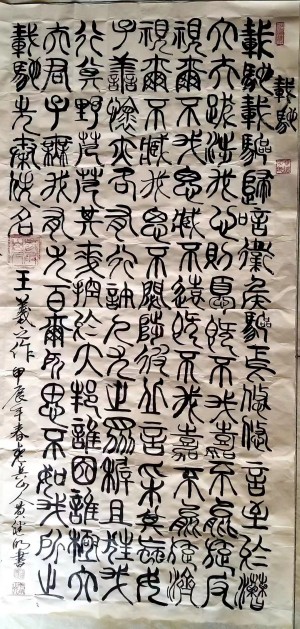 載馳
載馳載驅歸唁衛侯驅馬悠悠言至於漕
大夫跋涉我心則憂既不我嘉不能旋反
視爾不我思臧不遠既不我嘉不能旋濟
視爾不臧我思不閟陟彼丘言采其蝱女
子善懷亦各有行許人尤之眾穉且狂我
行其野芃芃其麥控於大邦誰因誰極大
夫君子無我有尤百爾所思不如我所之
載馳先秦佚名
王羲之作 甲辰年春 書